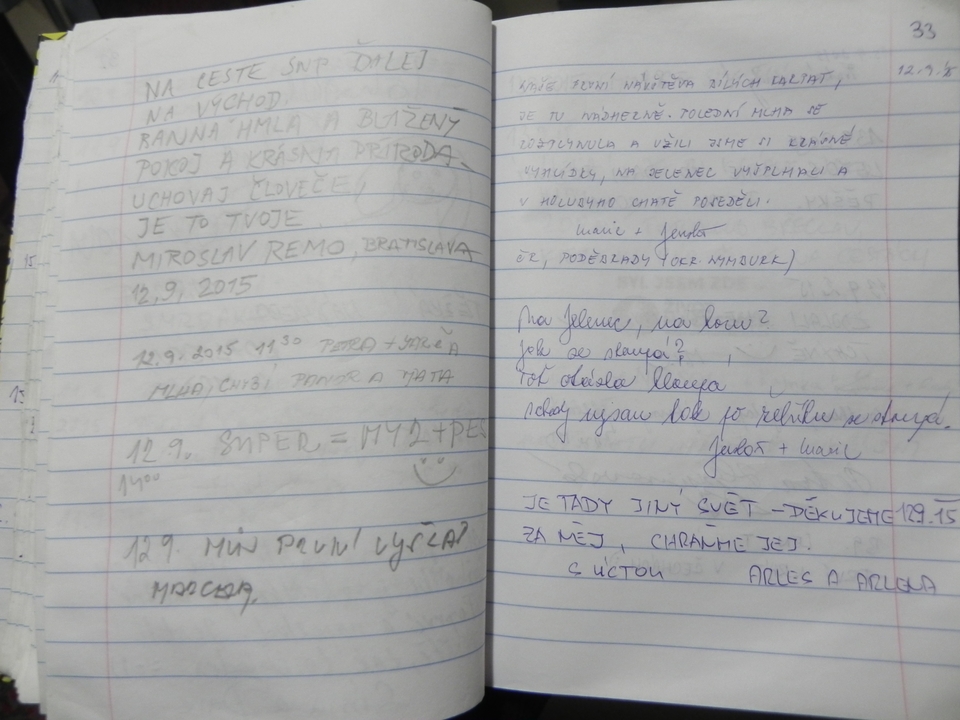 NA CESTE SNP ĎALEJ
NA VÝCHOD.
RANNÁ HMLA A BLAŽENÝ
POKOJ A KRÁSNA PRÍRODA.
UCHOVAJ ČLOVEČE,
JE TO TVOJE.
MIROSLAV REMO, BRATISLAVA
12.9. 2015
12.9.2015 11 30 PETRA +
MLHA, CHYBÍ A TATA
12.9. SUPER = MY2+PES
14 00
12 9. MŮJ PRVNÍ VÝŠLAP
33
12.9.15
NAŠE PRVNÍ NÁVŠTĚVA BÍLÝCH KARPAT,
JE TU NÁDHERNĚ. POLEDNÍ MLHA SE
ROZPLYNULA A UŽILI JSME SI KRÁSNÉ
VYHLÍDKY, NA JELENEC VYŠPLHALI A
V HOLUBYHO CHATĚ POSEDĚLI.
Marie +
ČR, PODĚBRADY (OKR. NYMBURK)
Na Jelenec, na horu?
Jak se stoupá?
Tož otázka hloupá
nikdy nejsou tak jo se stoupá.
+ Marie
JE TADY JINÝ SVĚT - DĚKUJEME 12.9.15
ZA NĚJ, CHRAŇME JEJ.
S ÚCTOU ARLES A ARLENA